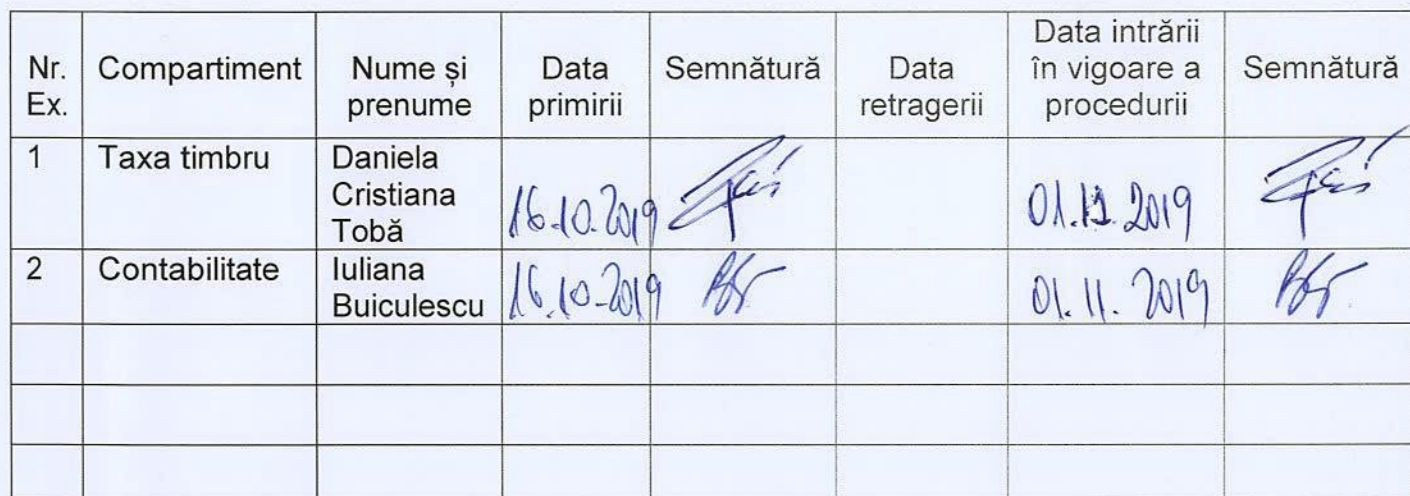 Nr. Ex. Compartiment Nume și prenume Data primirii Semnătură Data retragerii Data intrării în vigoare a procedurii Semnătură
1 Taxa timbru Daniela Cristiana Tobă 16.10.2019 01.11.2019
2 Contabilitate Iuliana Buiculescu 16.10-2019 01.11.2019